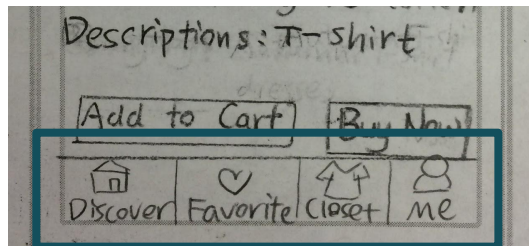 Descriptions: T-shirt
Add to Cart Buy Now
Discover Favorite Closet me